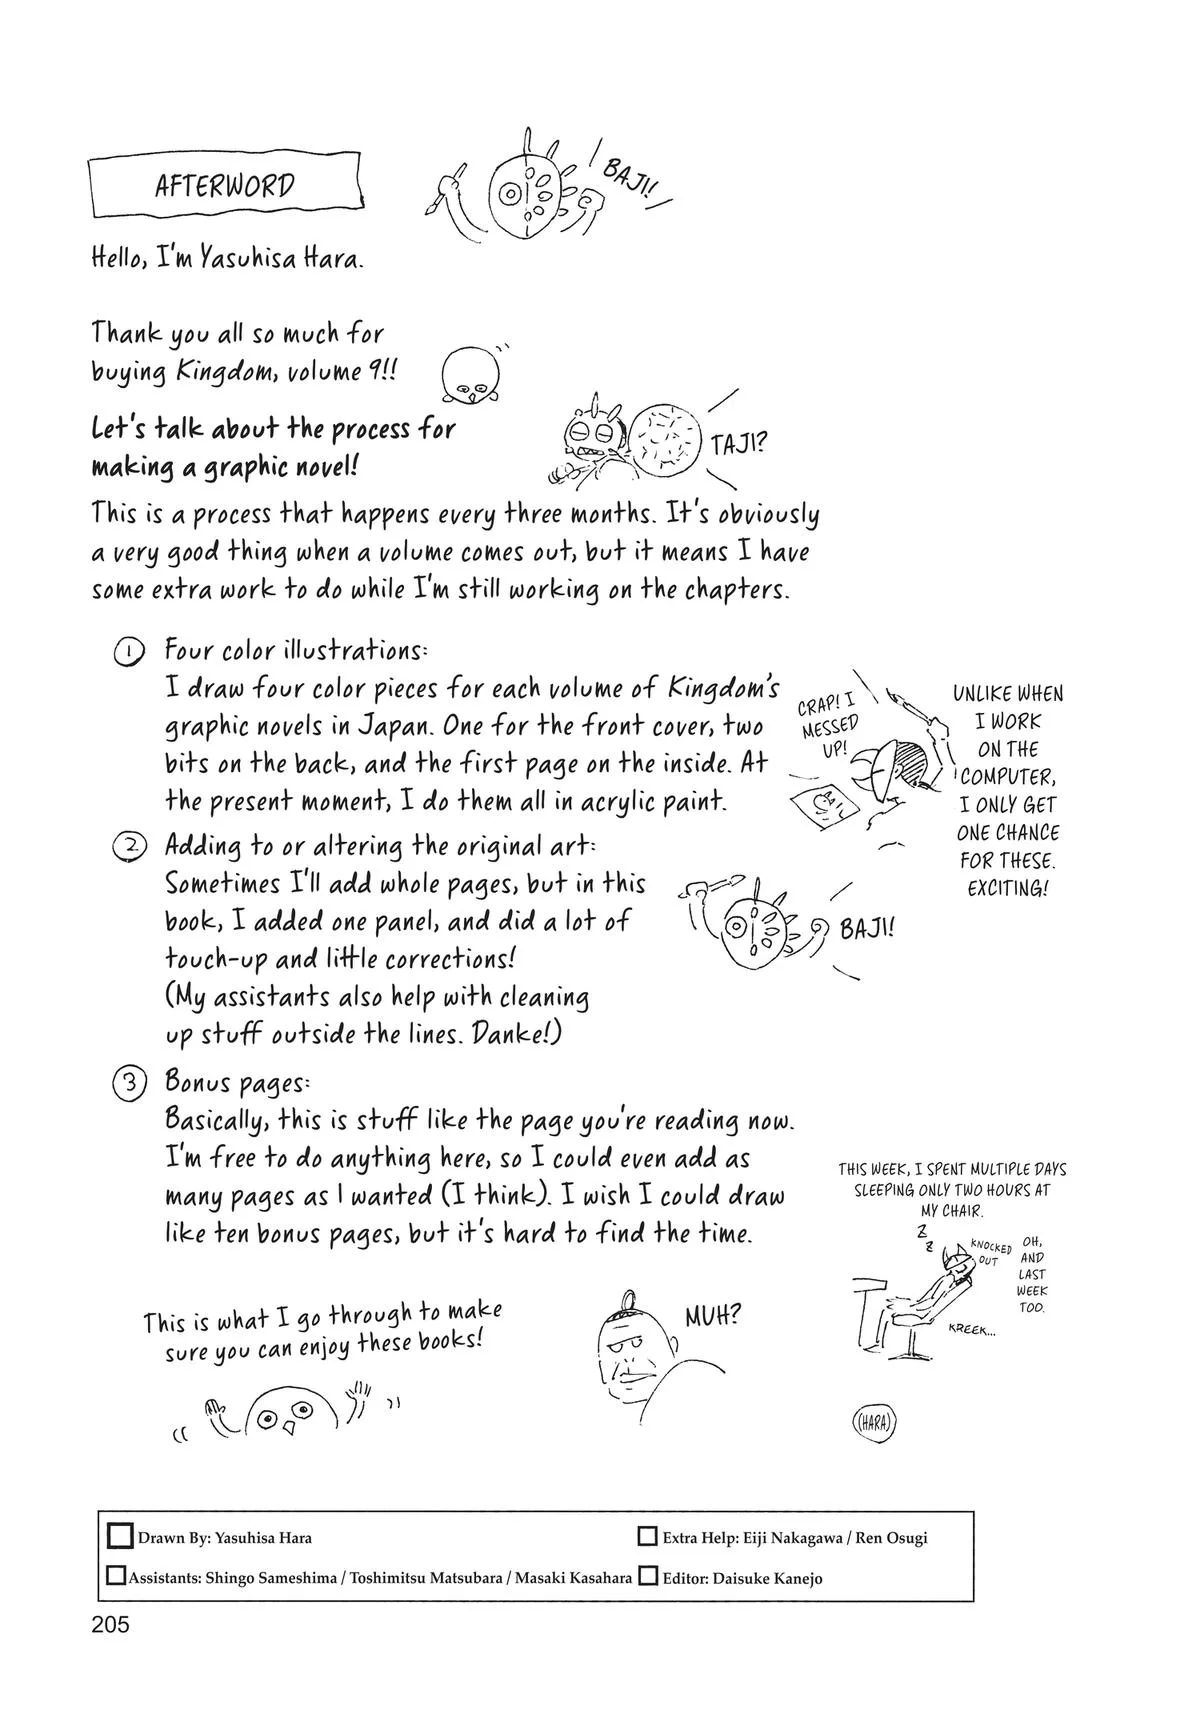 AFTERWORD
BAJI!
Hello, I'm Yasuhisa Hara.
Thank you all so much for
buying Kingdom, volume 9!!
Let's talk about the process for
making a graphic novel!
TAJI?
This is a process that happens every three months. It's obviously
a very good thing when a volume comes out, but it means I have
some extra work to do while I'm still working on the chapters.
1 Four color illustrations:
I draw four color pieces for each volume of Kingdom's
graphic novels in Japan. One for the front cover, two
bits on the back, and the first page on the inside. At
the present moment, I do them all in acrylic paint.
CRAP! I
MESSED
UP!
UNLIKE WHEN
I WORK
ON THE
COMPUTER,
I ONLY GET
ONE CHANCE
FOR THESE.
EXCITING!
2 Adding to or altering the original art:
Sometimes I'll add whole pages, but in this
book, I added one panel, and did a lot of
touch-up and little corrections!
(My assistants also help with cleaning
up stuff outside the lines. Danke!)
BAJI!
3 Bonus pages:
Basically, this is stuff like the page you're reading now.
I'm free to do anything here, so I could even add as
many pages as I wanted (I think). I wish I could draw
like ten bonus pages, but it's hard to find the time.
THIS WEEK, I SPENT MULTIPLE DAYS
SLEEPING ONLY TWO HOURS AT
MY CHAIR.
Z
Z
KNOCKED
OUT
OH,
AND
LAST
WEEK
TOO.
KREEK...
This is what I go through to make
sure you can enjoy these books!
MUH?
(HARA)
Drawn By: Yasuhisa Hara
Extra Help: Eiji Nakagawa / Ren Osugi
Assistants: Shingo Sameshima / Toshimitsu Matsubara / Masaki Kasahara
Editor: Daisuke Kanejo
205